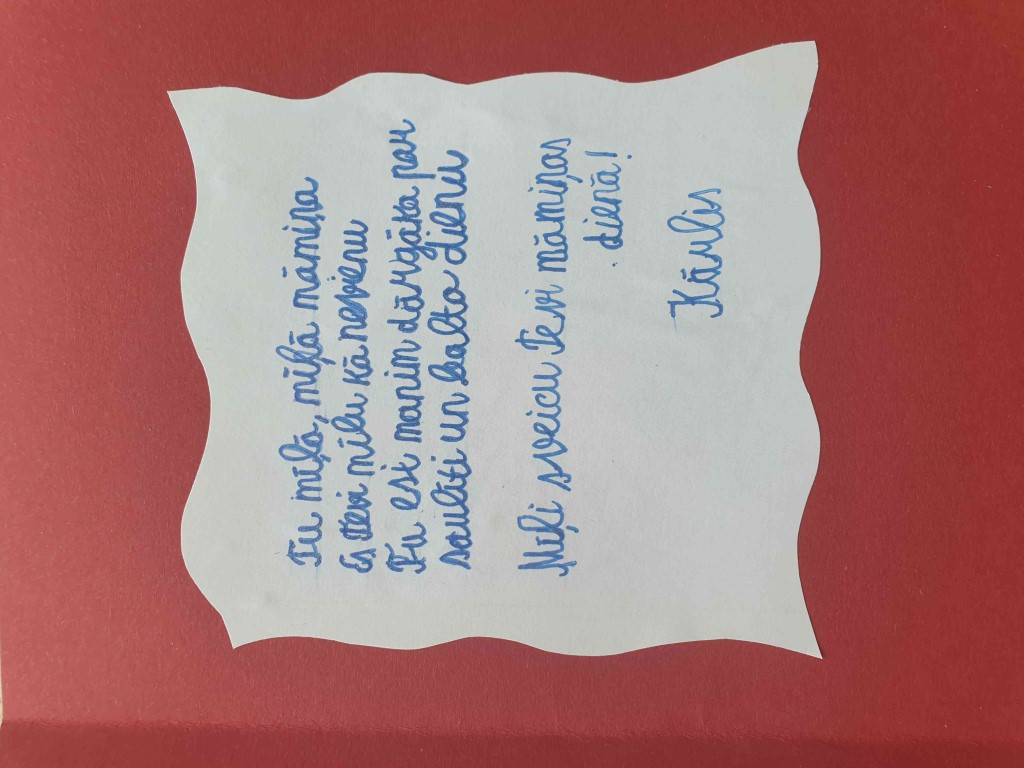 Tu mīļā, mīļā māmiņa
Es Tevi mīlu kā nevienu
Tu esi manim dārgāka par
saulīti un balto dienu
Mīļi sveicu Tevi māmiņas
dienā!
Kārlis